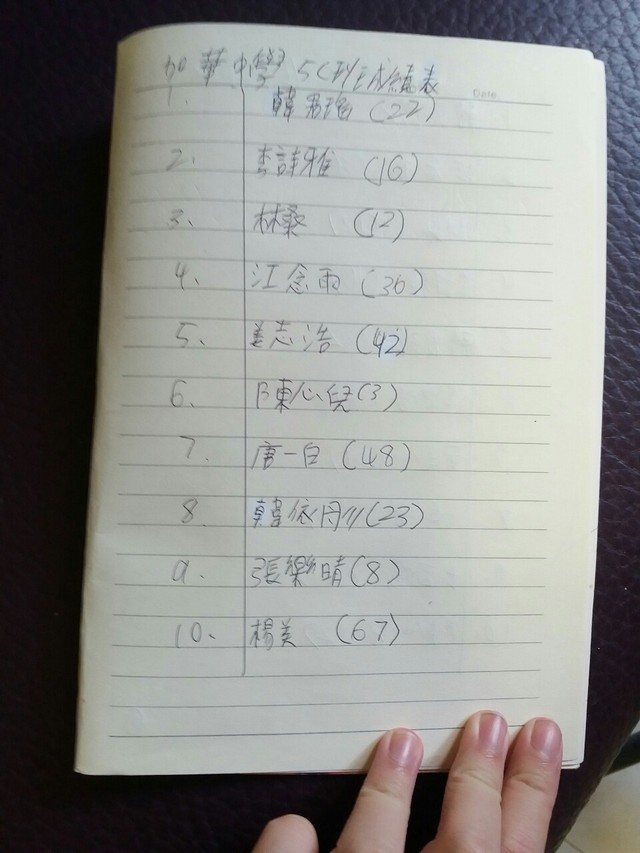 加華中學 5C班成績表
Date
1. 韓君瑤 (22)
2. 李詩雅 (16)
3. 林桑 (12)
4. 江念雨 (36)
5. 姜志浩 (42)
6. 陳心兒 (3)
7. 唐一白 (48)
8. 韓依 (23)
9. 張樂晴 (8)
10. 楊美 (67)